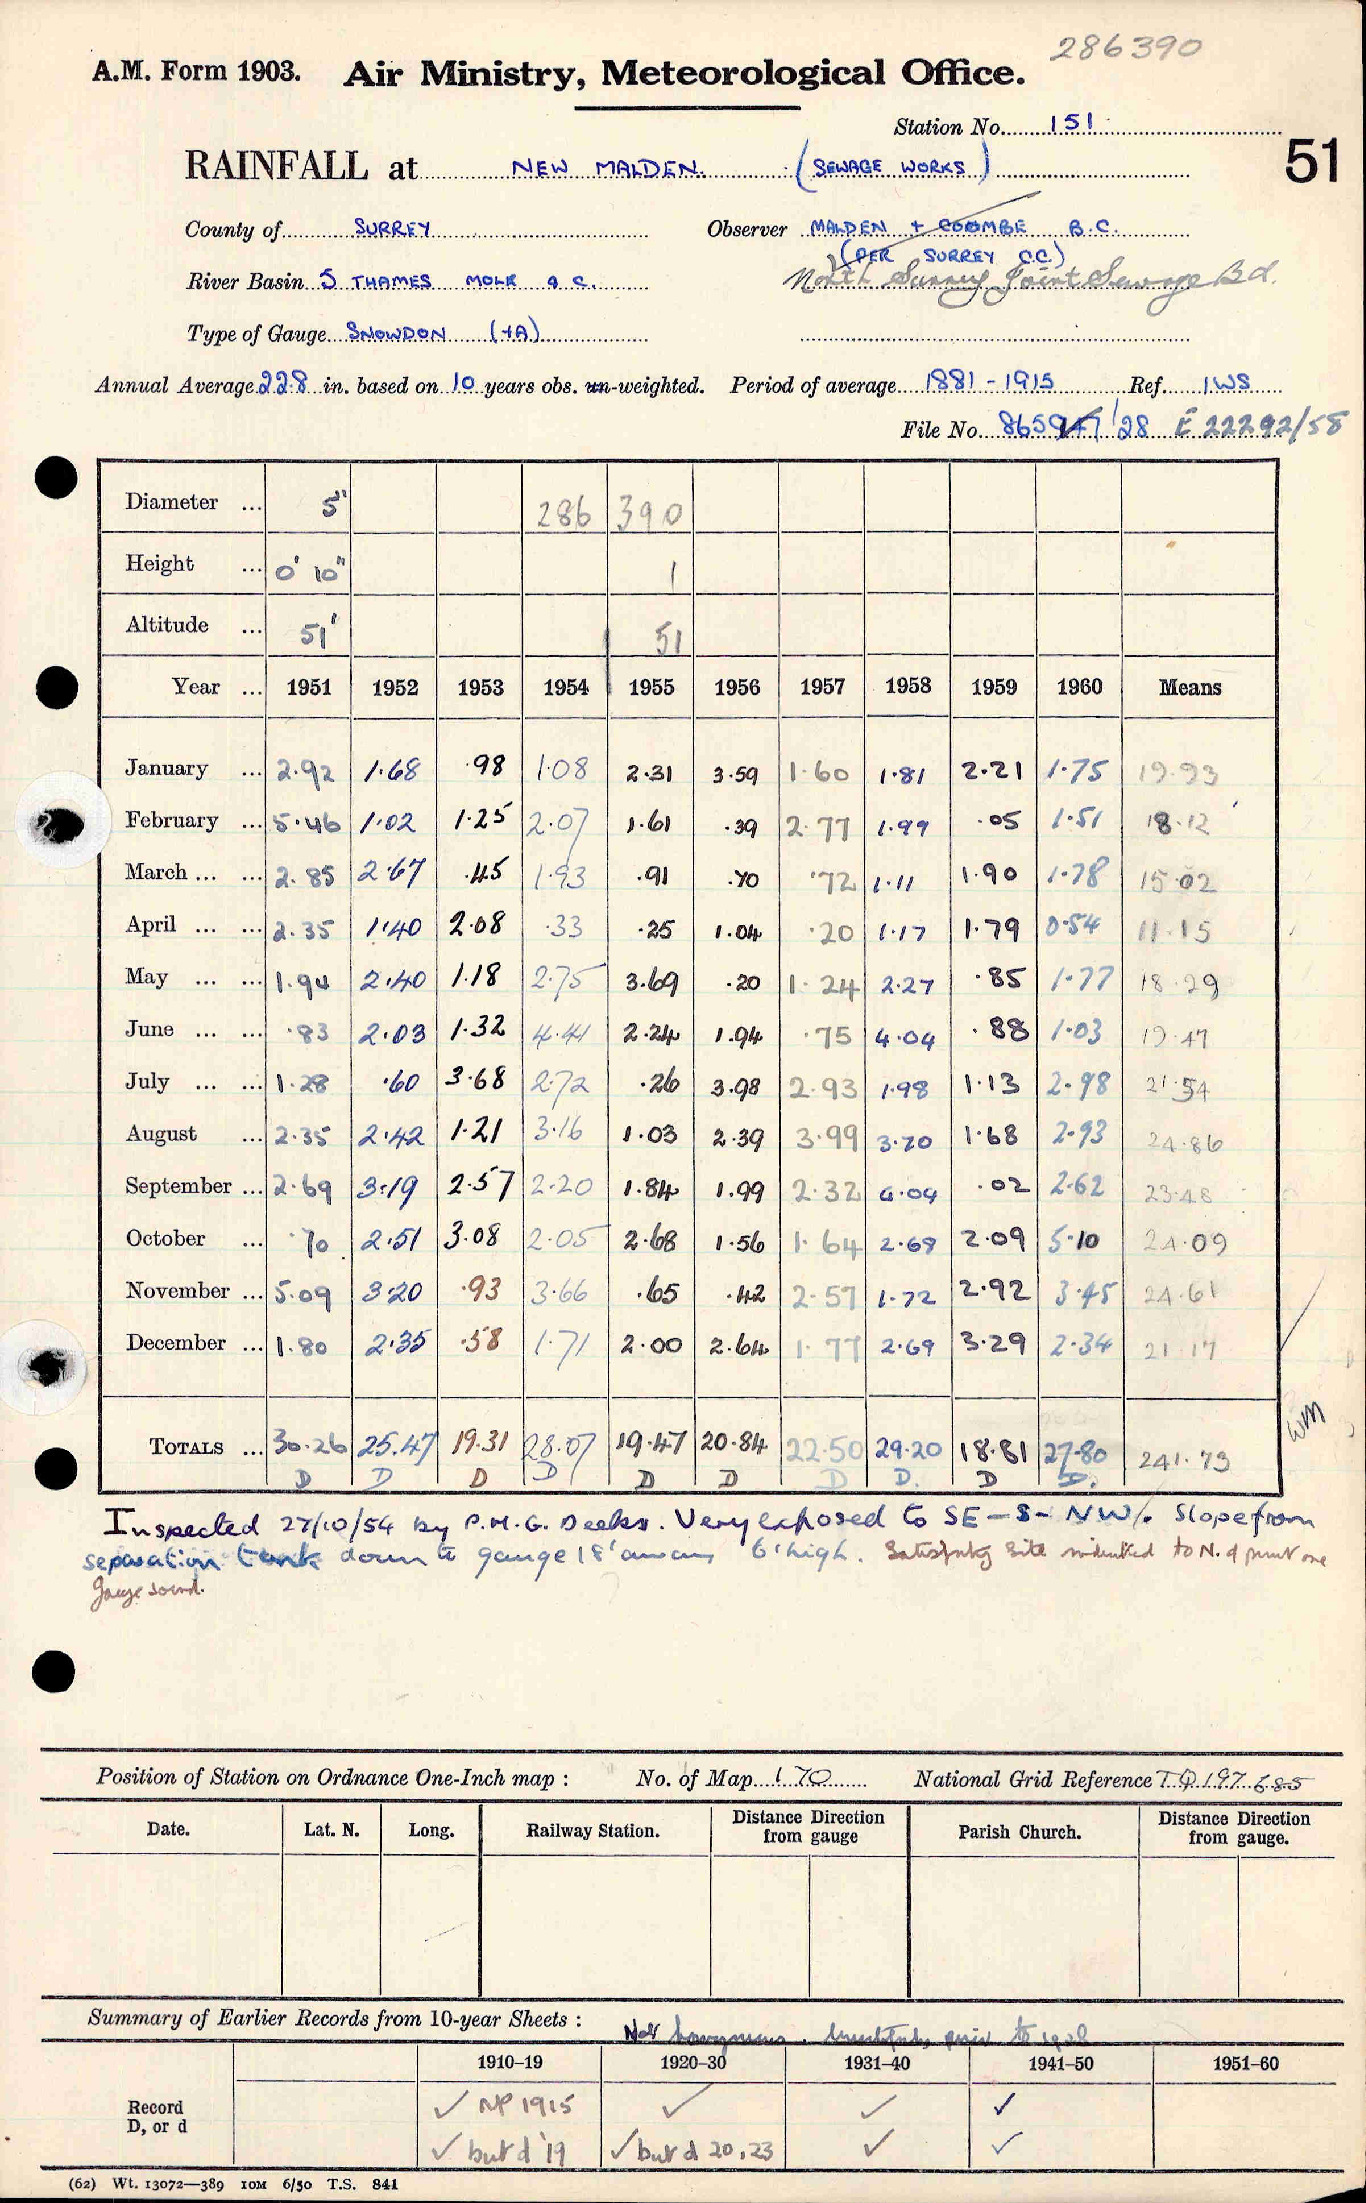 286390
A.M. Form 1903. Air Ministry, Meteorological Office.
Station No. 151
51
RAINFALL at NEW MALDEN. (SEWAGE WORKS)
County of SURREY Observer MALDEN + COOMBE B.C.
(PER SURREY C.C.)
River Basin 5 THAMES MOLE & C. North Surrey Joint Sewage Bd.
Type of Gauge SNOWDON (+A)
Annual Average 22.8 in. based on 10 years obs. un-weighted. Period of average 1881-1915 Ref. IWS
File No. /28 E 22292/58
Diameter ... 5" 286 390
Height ... 0' 10" 1
Altitude ... 51' 51
Year ... 1951 1952 1953 1954 1955 1956 1957 1958 1959 1960 Means
January ... 2.92 1.68 .98 1.08 2.31 3.59 1.60 1.81 2.21 1.75 19.93
February ... 5.46 1.02 1.25 2.07 1.61 .39 2.77 1.99 .05 1.51 18.12
March ... ... 2.85 2.67 .45 1.93 .91 .70 .72 1.11 1.90 1.78 15.02
April ... ... 2.35 1.40 2.08 .33 .25 1.04 .20 1.17 1.79 0.54 11.15
May ... ... 1.94 2.40 1.18 2.75 3.69 .20 1.24 2.27 .85 1.77 18.29
June ... ... .83 2.03 1.32 4.41 2.24 1.94 .75 4.04 .88 1.03 19.47
July ... ... 1.28 .60 3.68 2.72 .26 3.98 2.93 1.98 1.13 2.98 21.54
August ... 2.35 2.42 1.21 3.16 1.03 2.39 3.99 3.70 1.68 2.93 24.86
September ... 2.69 3.19 2.57 2.20 1.84 1.99 2.32 4.04 .02 2.62 23.48
October ... .70 2.51 3.08 2.05 2.68 1.56 1.64 2.68 2.09 5.10 24.09
November ... 5.09 3.20 .93 3.66 .65 .42 2.57 1.72 2.92 3.45 24.61
December ... 1.80 2.35 .58 1.71 2.00 2.64 1.77 2.69 3.29 2.34 21.17
TOTALS ... 30.26 25.47 19.31 28.07 19.47 20.84 22.50 29.20 18.81 27.80 241.73
D D D D D D D D. D D.
WM
Inspected 27/10/54 by P.M.G. Deeks. Very exposed to SE-S-NW. Slope from
separation tank down to gauge 18' away 6' high. Satisfactory site indicated to N. of present one
Gauge sound.
Position of Station on Ordnance One-Inch map : No. of Map 170 National Grid Reference TQ 197 685
Date. Lat. N. Long. Railway Station. Distance from gauge Direction Parish Church. Distance from gauge. Direction
Summary of Earlier Records from 10-year Sheets : Not homogeneous. prior to 1928
1910-19 1920-30 1931-40 1941-50 1951-60
Record ✓ NP 1915 ✓ ✓ ✓
D, or d ✓ but d '19 ✓ but d 20, 23 ✓ ✓
(62) Wt. 13072—389 10M 6/50 T.S. 841